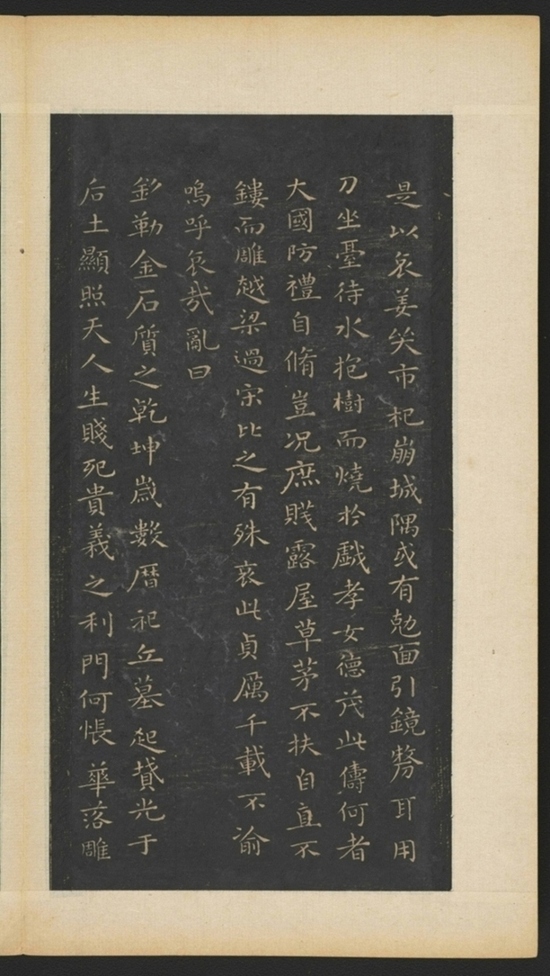 是以哀姜笑市杞崩城隅或有勉面引鏡剺耳用
刀坐臺待水抱樹而燒於戲孝女德茂此儔何者
大國防禮自脩豈況庶賤露屋草茅不扶自直不
鏤而雕越梁過宋比之有殊哀此貞厲千載不渝
嗚呼哀哉亂曰
銘勒金石質之乾坤歲數曆祀丘墓起墳光于
后土顯照天人生賤死貴義之利門何悵華落雕